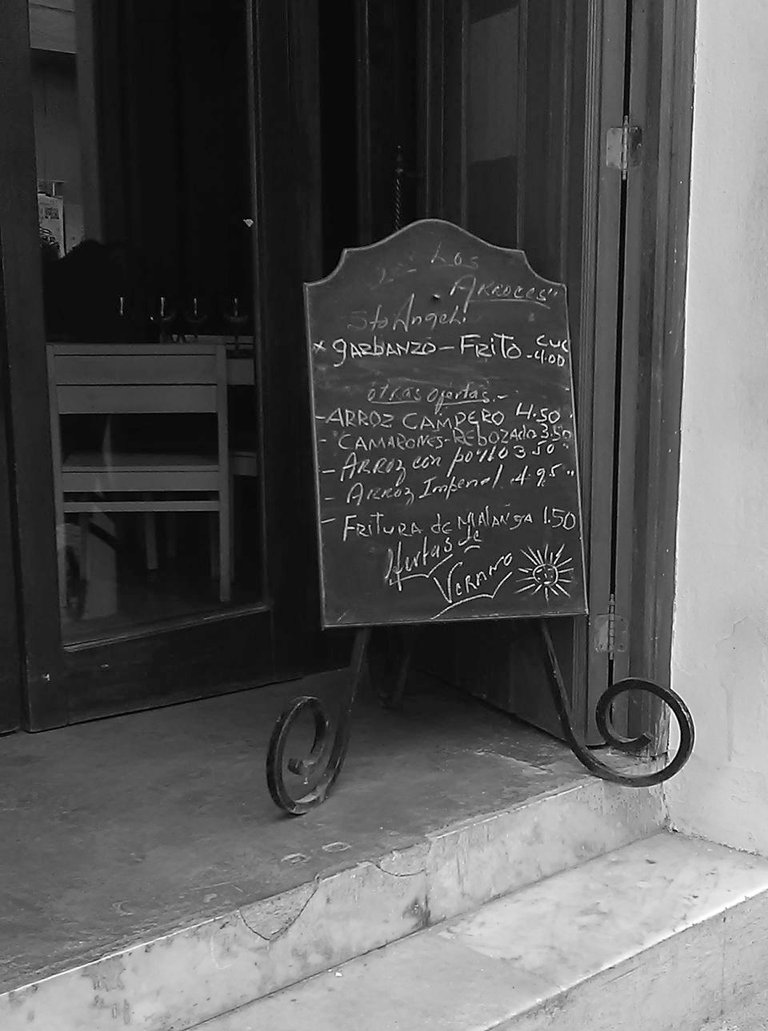 Los
Arroces"
Sto Angel.
* GARBANZO - FRITO - CUC 4.00
otras ofertas.-
- ARROZ CAMPERO 4.50
- CAMARONES - REBOZAdo 3.50
- ARROZ con pollo 3.50
- ARROZ Imperial 4.95
- FRITURA de MALANgA 1.50
Ofertas de
VERANO